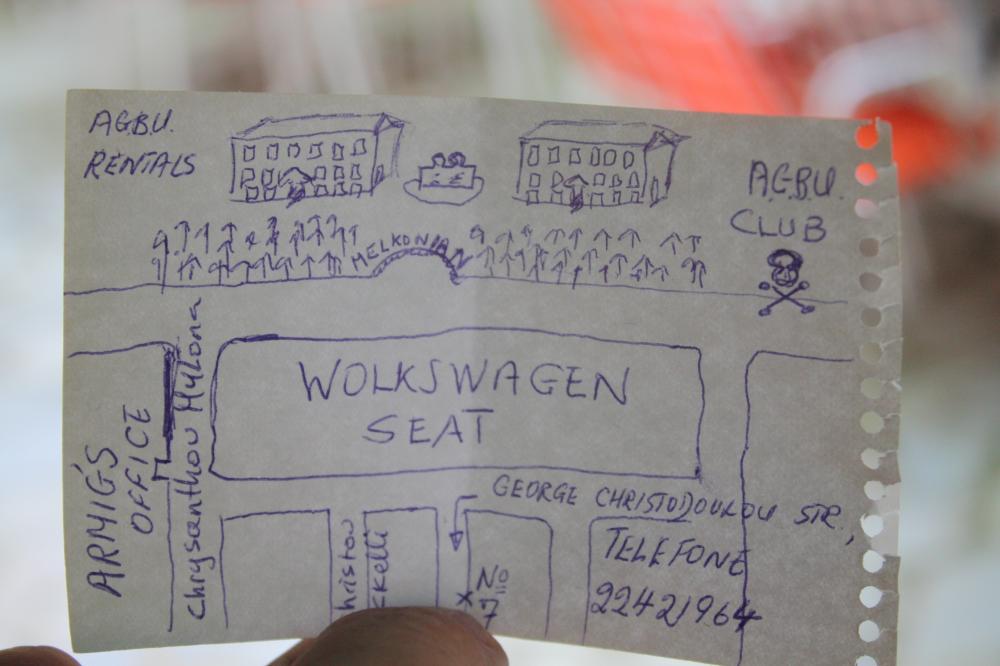 A.G.B.U.
RENTALS
A.G.B.U.
CLUB
MELKONIAN
WOLKSWAGEN
SEAT
ARMIG'S
OFFICE
Chrysanthou Mylona
GEORGE CHRISTODOULOU STR.,
TELEFONE
22421964